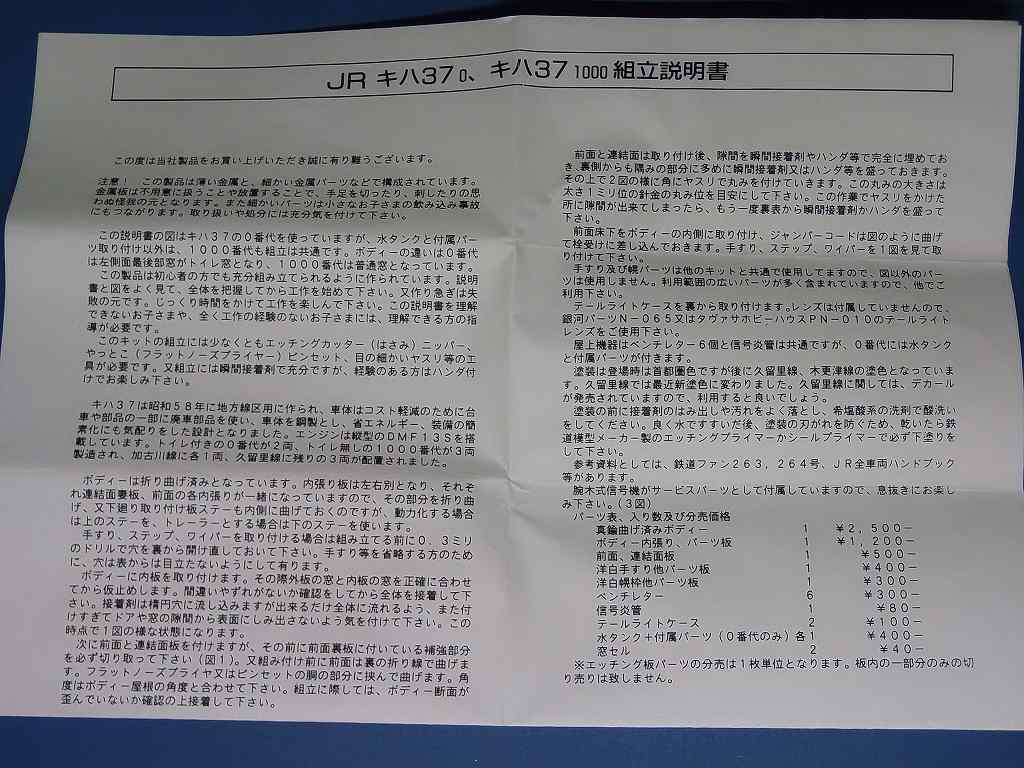 JR キハ37 0、キハ37 1000 組立説明書
この度は当社製品をお買い上げいただき誠に有り難うございます。
注意！ この製品は薄い金属と、細かい金属パーツなどで構成されています。
金属板は不用意に扱うことや放置することで、手足を切ったり、刺したりの思
わぬ怪我の元となります。また細かいパーツは小さなお子さまの飲み込み事故
にもつながります。取り扱いや処分には充分気を付けて下さい。
この説明書の図はキハ37の0番代を使っていますが、水タンクと付属パー
ツ取り付け以外は、1000番代も組立は共通です。ボディーの違いは0番代
は左側面最後部窓がトイレ窓となり、1000番代は普通窓となっています。
この製品は初心者の方でも充分組み立てられるように作られています。説明
書と図をよく見て、全体を把握してから工作を始めて下さい。又作り急ぎは失
敗の元です。じっくり時間をかけて工作を楽しんで下さい。この説明書を理解
できないお子さまや、全く工作の経験のないお子さまには、理解できる方の指
導が必要です。
このキットの組立には少なくともエッチングカッター（はさみ）ニッパー、
やっとこ（フラットノーズプライヤー）ピンセット、目の細かいヤスリ等の工
具が必要です。又組立には瞬間接着剤で充分ですが、経験のある方はハンダ付
けでお楽しみ下さい。
キハ37は昭和58年に地方線区用に作られ、車体はコスト軽減のために台
車や部品の一部に廃車部品を使い、車体を鋼製とし、省エネルギー、装備の簡
素化にも気配りをした設計となりました。エンジンは縦型のDMF13Sを搭
載しています。トイレ付きの0番代が2両、トイレ無しの1000番代が3両
製造され、加古川線に各1両、久留里線に残りの3両が配置されました。
ボディーは折り曲げ済みとなっています。内張り板は左右別となり、それぞ
れ連結面要板、前面の各内張りが一緒になっていますので、その部分を折り曲
げ、又下廻り取り付け板ステーも内側に曲げておくのですが、動力化する場合
は上のステーを、トレーラーとする場合は下のステーを使います。
手すり、ステップ、ワイパーを取り付ける場合は組み立てる前に0.3ミリ
のドリルで穴を裏から開け直しておいて下さい。手すり等を省略する方のため
に、穴は表からは目立たないようにして有ります。
ボディーに内板を取り付けます。その際外板の窓と内板の窓を正確に合わせ
てから仮止めします。間違いやずれがないか確認をしてから全体を接着して下
さい。接着剤は楕円穴に流し込みますが出来るだけ全体に流れるよう、また付
けすぎてドアや窓の隙間から表面にしみ出さないよう気を付けて下さい。この
時点で1図の様な状態になります。
次に前面と連結面板を付けますが、その前に前面裏板に付いている補強部分
を必ず切り取って下さい（図1）。又組み付け前に前面は裏の折り線で曲げま
す。フラットノーズプライヤ又はピンセットの胴の部分に挟んで曲げます。角
度はボディー屋根の角度と合わせて下さい。組立に際しては、ボディー断面が
歪んでいないか確認の上接着して下さい。
前面と連結面は取り付け後、隙間を瞬間接着剤やハンダ等で完全に埋めてお
き、裏側からも隅みの部分に多めに瞬間接着剤又はハンダ等を盛っておきます。
その上で2図の様に角にヤスリで丸みを付けていきます。この丸みの大きさは
太さ1ミリ位の針金の丸み位を目安にして下さい。この作業でヤスリをかけた
所に隙間が出来てしまったら、もう一度裏表から瞬間接着剤かハンダを盛って
下さい。
前面床下をボディーの内側に取り付け、ジャンパーコードは図のように曲げ
て栓受けに差し込んでおきます。手すり、ステップ、ワイパーを1図を見て取
り付けて下さい。
手すり及び幌パーツは他のキットと共通で使用してますので、図以外のパー
ツは使用しません。利用範囲の広いパーツが多く含まれていますので、他でご
利用下さい。
テールライトケースを裏から取り付けます。レンズは付属していませんので、
銀河パーツN－065又はタヴァサホビーハウスPN－010のテールライト
レンズをご使用下さい。
屋上機器はベンチレター6個と信号炎管は共通ですが、0番代には水タンク
と付属パーツが付きます。
塗装は登場時は首都圏色ですが後に久留里線、木更津線の塗色となっていま
す。久留里線では最近新塗色に変わりました。久留里線に関しては、デカール
が発売されていますので、利用すると良いでしょう。
塗装の前に接着剤のはみ出しや汚れをよく落とし、希塩酸系の洗剤で酸洗い
をしてください。良く水ですすいだ後、塗装の刃がれを防ぐため、乾いたら鉄
道模型メーカー製のエッチングプライマーかシールプライマーで必ず下塗りを
して下さい。
参考資料としては、鉄道ファン263，264号、JR全車両ハンドブック
等があります。
腕木式信号機がサービスパーツとして付属していますので、息抜きにお楽し
み下さい。（3図）
パーツ表、入り数及び分売価格
真鍮曲げ済みボディー 1 ￥2，500－
ボディー内張り、パーツ板 1 ￥1，200－
前面、連結面板 1 ￥500－
洋白手すり他パーツ板 1 ￥400－
洋白幌枠他パーツ板 1 ￥300－
ベンチレター 6 ￥300－
信号炎管 1 ￥80－
テールライトケース 2 ￥100－
水タンク＋付属パーツ（0番代のみ）各1 ￥400－
窓セル 2 ￥40－
※エッチング板パーツの分売は1枚単位となります。板内の一部分のみの切
り売りは致しません。